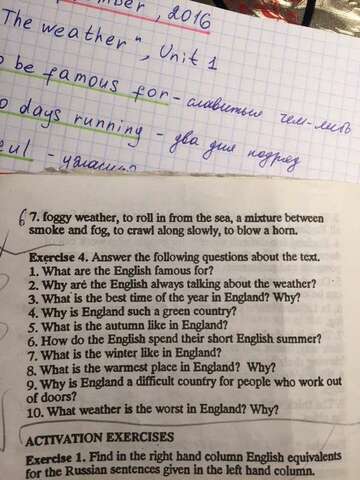 mber, 2016
The weather", Unit 1
o be famous for - славиться чем-либо
o days running - два дня подряд
7. foggy weather, to roll in from the sea, a mixture between
smoke and fog, to crawl along slowly, to blow a horn.
Exercise 4. Answer the following questions about the text.
1. What are the English famous for?
2. Why are the English always talking about the weather?
3. What is the best time of the year in England? Why?
4. Why is England such a green country?
5. What is the autumn like in England?
6. How do the English spend their short English summer?
7. What is the winter like in England?
8. What is the warmest place in England? Why?
9. Why is England a difficult country for people who work out
of doors?
10. What weather is the worst in England? Why?
ACTIVATION EXERCISES
Exercise 1. Find in the right hand column English equivalents
for the Russian sentences given in the left hand column.